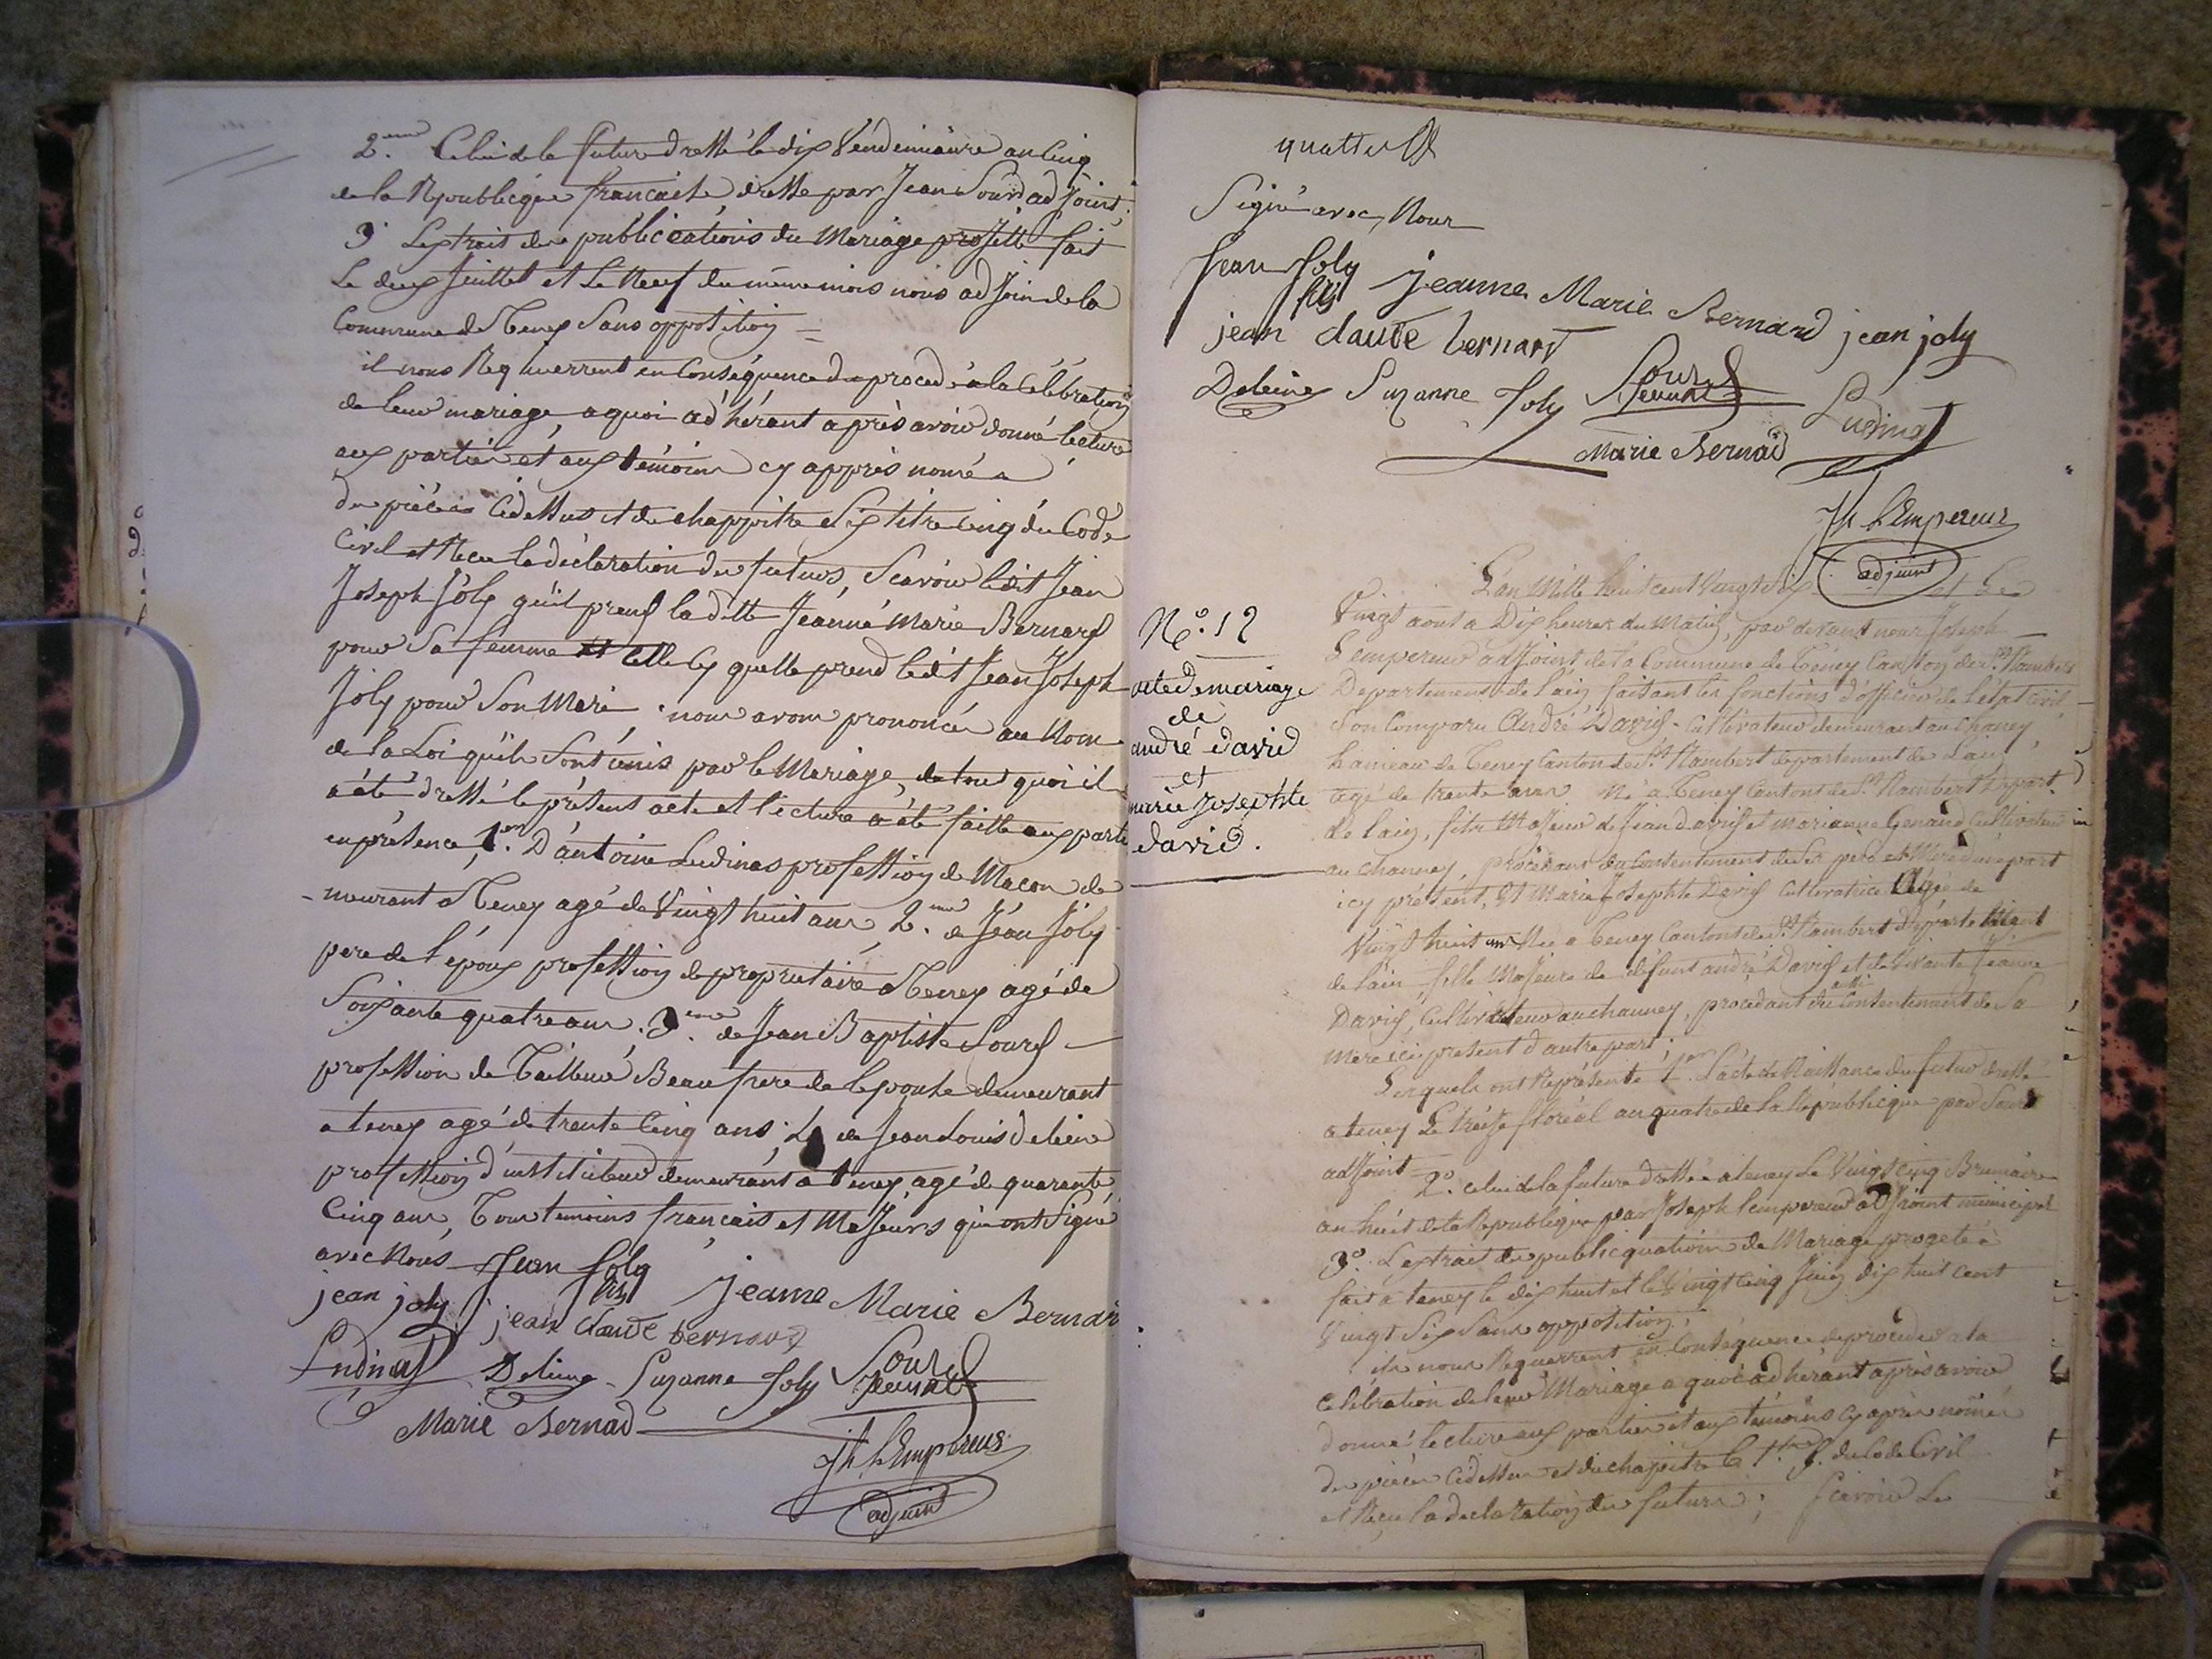 2.eme Celui de la future dressé le dix Vendemiaire an Cinq
de la Republicque francaise dressé par Jean Sourd adjoint.
3. Lextrait des publiccations du Mariage projetté fait
Le deux Juillet et Le Neuf du même mois nous adjoin de la
Commune de Teney Sans opposition =
il nous Requierrent en Conséquence de procedé a la Célébration
de leur mariage, a quoi ad hérant après avoir donné lecture
aux partiés et aux témoins cy apprès nomé
des pièces Cidessus et du chappitre Six titre Cinq du Code
Civil et Recu la déclaration des futurs, Scavoir ledit Jean
Joseph Joly qu'il prend la ditte Jeánné Marie Bernard
pour Sa femme et Celle Cy quelle prend ledit Jean Joseph
Joly pour Son Mari nous avons prononcés au Nom
de la Loi qu'ils Sont unis par le Mariage, de tout quoi il
a été dressé le présent acte et lecture a été faitte aux partie
en présence, 1.er D'antoine Ludinas profession de Macon de
-meurant a Teney agé de Vingt huit ans 2.eme de Jean Joly
pere de l'époux profession de propriétaire a Teney agé de
Soixante quatre ans. 3.eme de Jean Baptiste Sourd
profession de Tailleur Beau frere de lepouse demeurant
a teney agé de trente Cinq ans; de Jean Louis Deleine
profession d'instituteur demeurant a teney, agé de quarante
Cinq ans, Tous temoins français et Majeurs qui ont Signé
avec Nous Jean Joly
fils jeanne Marie Bernard
jean joly jean claude bernard
Ludinas Deleine Suzanne Joly Sourd
Marie Bernad
Jh LEmpereur
adjoint
quatre
Signé avec Nous
Jean Joly
fils jeanne Marie Bernard jean joly
jean claude bernard
Deleine Suzanne Joly Sourd Ludinas
Marie Bernad
Jh LEmpereur
adjoint
N.o 12
acte de mariage
de
andré david
et
marie Josephte
david.
L'an Mille huit cent Vingt Six et Le
Vingt aout a Dix heures du Matin, par devant nous Joseph
Lempereur adjoint de la Commune de Teney Canton de St. Rambert
Departement de l'ain faisant les fonctions d'officier de l'état Civil
Son Comparu André David Cultivateur demeurant au Chaney
hameau de Teney Canton de St. Rambert departement de Lain
agé de trente ans Né a Teney Canton de St. Rambert Départ.
de lain, fils Majeur de Jean david et marianne Genaud Cultivateur
au channey, procedant du Consentement de Ses pere et Mere dune part
icy présent, Et Marie Josephte David Cultivatrice agée de
Vingt huit ans Née a Teney Canton de St. Rambert departement
de lain fille Majeure de défunt andré David et de Vivante Jeanne
David, Cultivateur au channey, procedant du Consentement de Sa
mere ici présent d'autre part;
Lesquels ont Représenté 1.er L'acte de Naissance du futur dressé
a teney Le treize floréal an quatre de la Republicque par Sourd
adjoint 2.o Celui de la future dressé a teney Le Vingt Cinq Brumaire
an huit de la Republique par Joseph Lempereur adjoint municipal
3.o Lextrait des publicquations de Mariage progeté
fait a teney le dix huit et le Vingt Cinq Juin dix huit Cent
Vingt Six Sans opposition,
ils nous Requerrent en Conséquence de procéder a la
Célébration de leur Mariage a quoi ad hérant après avoir
donné lecture aux parties et aux témoins cy après només
des pièces Cidessus et du chapitre 6 t.tre 5. du Code Civil
et Reçu la declaration des futurs; Scavoir Le